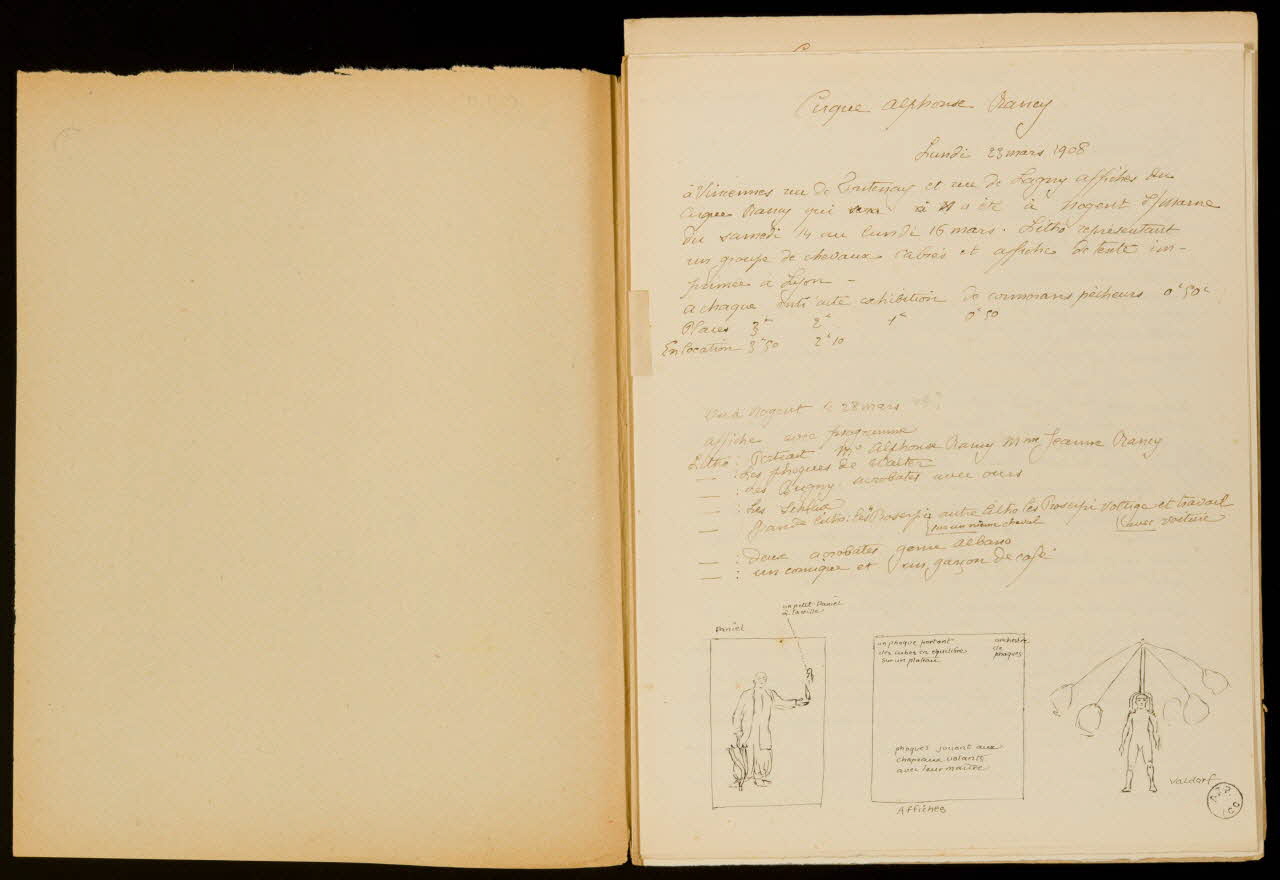 Cirque Alphonse Rancy
Lundi 23 mars 1908
à Vincennes rue de Fontenay et rue de Lagny affiches du
Cirque Rancy qui a été à Nogent s/Marne
du samedi 14 au lundi 16 mars. Litho représentant
un groupe de chevaux cabrés et affiche de texte im-
primée à Lyon -
a chaque entr'acte exhibition de cormorans pêcheurs 0f50c
Places 3f 2f 1f 0f50
En location 3f50 2f10
Vu à Nogent le 28 mars
affiche avec programme
Litho: Portrait Mr Alphonse Rancy Mme Jeanne Rancy
— : Les phoques de
— : Les acrobates avec ours
— : Les
— Grande litho: Les Proserpi autre litho les Proserpi voltige et travail
sur un même cheval avec voiture
— : deux acrobates genre Albano
— : un comique et un garçon de café
Daniel
un petit Daniel
à famille
un phoque portant
des cubes en équilibre
sur un plateau
orchestre
de
phoques
phoques jouant aux
chapeaux volants
avec leur maître
Affiches
Valdorf